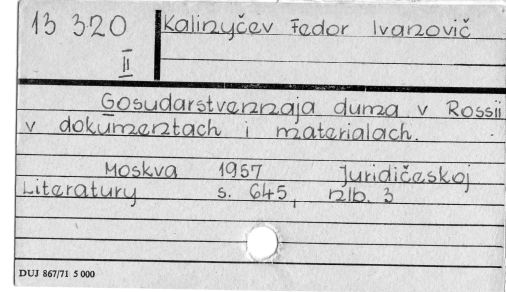 13 320 Kalinyčev Fedor Ivanovič
II
Gosudarstvennaja duma v Rossii
v dokumentach i materialach.
Moskva 1957 Juridičeskoj
Literatury s. 645, nlb. 3
DUJ 867/71 5 000